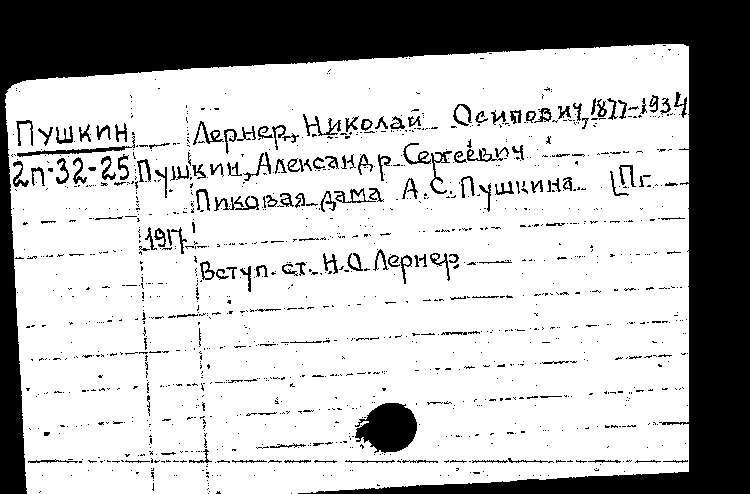 Пушкин Лернер, Николай Осипович, 1877-1934
2п-32-25 Пушкин, Александр Сергеевич
Пиковая дама А.С. Пушкина [Пг.
1917.
Вступ. ст. Н.О. Лернер